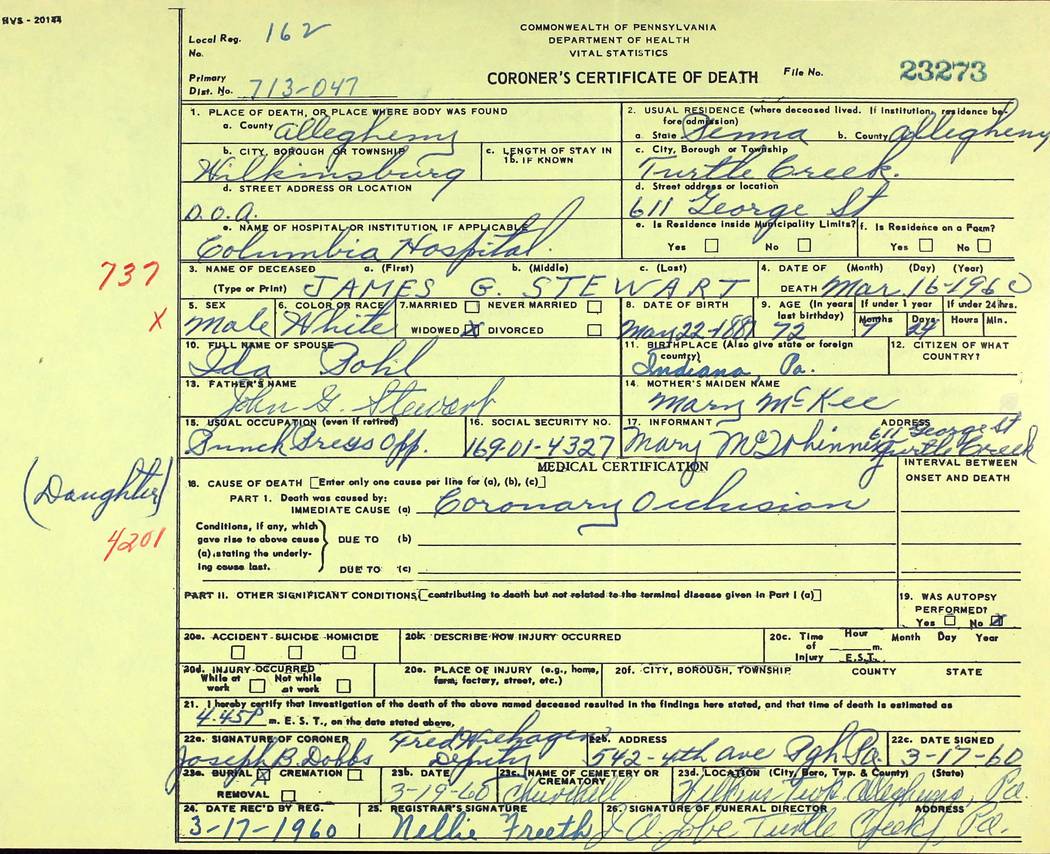 HVS - 20144
Local Reg. No. 162
COMMONWEALTH OF PENNSYLVANIA
DEPARTMENT OF HEALTH
VITAL STATISTICS
Primary Dist. No. 713-047
CORONER'S CERTIFICATE OF DEATH
File No. 23273
1. PLACE OF DEATH, OR PLACE WHERE BODY WAS FOUND
a. County Allegheny
2. USUAL RESIDENCE (where deceased lived. If institution, residence before admission)
a. State Penna b. County Allegheny
b. CITY, BOROUGH OR TOWNSHIP
Wilkinsburg
c. LENGTH OF STAY IN 1b. IF KNOWN
c. City, Borough or Township
Turtle Creek.
d. STREET ADDRESS OR LOCATION
D.O.A.
d. Street address or location
611 George St
e. NAME OF HOSPITAL OR INSTITUTION, IF APPLICABLE
Columbia Hospital.
e. Is Residence inside Municipality Limits?
Yes No
f. Is Residence on a Farm?
Yes No
737
3. NAME OF DECEASED a. (First) b. (Middle) c. (Last)
(Type or Print) JAMES G. STEWART
4. DATE OF DEATH (Month) (Day) (Year)
Mar. 16-1960
X
5. SEX
Male
6. COLOR OR RACE
White
7. MARRIED NEVER MARRIED
WIDOWED X DIVORCED
8. DATE OF BIRTH
9. AGE (In years last birthday)
72
If under 1 year
Months Days
24
If under 24 hrs.
Hours Min.
10. FULL NAME OF SPOUSE
Ida Pohl
11. BIRTHPLACE (Also give state or foreign country)
Indiana, Pa.
12. CITIZEN OF WHAT COUNTRY?
13. FATHER'S NAME
John G. Stewart
14. MOTHER'S MAIDEN NAME
Mary McKee
15. USUAL OCCUPATION (even if retired)
Punch Press Opp.
16. SOCIAL SECURITY NO.
169-01-4327
17. INFORMANT ADDRESS
Mary McWhinney 611 George St
Turtle Creek
(Daughter)
MEDICAL CERTIFICATION
INTERVAL BETWEEN ONSET AND DEATH
18. CAUSE OF DEATH [Enter only one cause per line for (a), (b), (c)]
PART 1. Death was caused by:
IMMEDIATE CAUSE (a) Coronary Occlusion
4201
Conditions, if any, which gave rise to above cause (a), stating the underlying cause last.
DUE TO (b)
DUE TO (c)
PART II. OTHER SIGNIFICANT CONDITIONS, [contributing to death but not related to the terminal disease given in Part I (a)]
19. WAS AUTOPSY PERFORMED?
Yes No X
20a. ACCIDENT SUICIDE HOMICIDE
20b. DESCRIBE HOW INJURY OCCURRED
20c. Time of Injury Hour m. E.S.T. Month Day Year
20d. INJURY OCCURRED
While at work Not while at work
20e. PLACE OF INJURY (e.g., home, farm, factory, street, etc.)
20f. CITY, BOROUGH, TOWNSHIP COUNTY STATE
21. I hereby certify that investigation of the death of the above named deceased resulted in the findings here stated, and that time of death is estimated as
4.45P m. E. S. T., on the date stated above.
22a. SIGNATURE OF CORONER
Joseph B. Dobbs
Deputy
22b. ADDRESS
542-4th ave Pgh. Pa.
22c. DATE SIGNED
3-17-60
23a. BURIAL X CREMATION
REMOVAL
23b. DATE
3-19-60
23c. NAME OF CEMETERY OR CREMATORY
Churchill
23d. LOCATION (City, Boro, Twp. & County) (State)
Wilkins Twp. Allegheny, Pa.
24. DATE REC'D BY REG.
3-17-1960
25. REGISTRAR'S SIGNATURE
Nellie Freeth
26. SIGNATURE OF FUNERAL DIRECTOR ADDRESS
Turtle Creek, Pa.